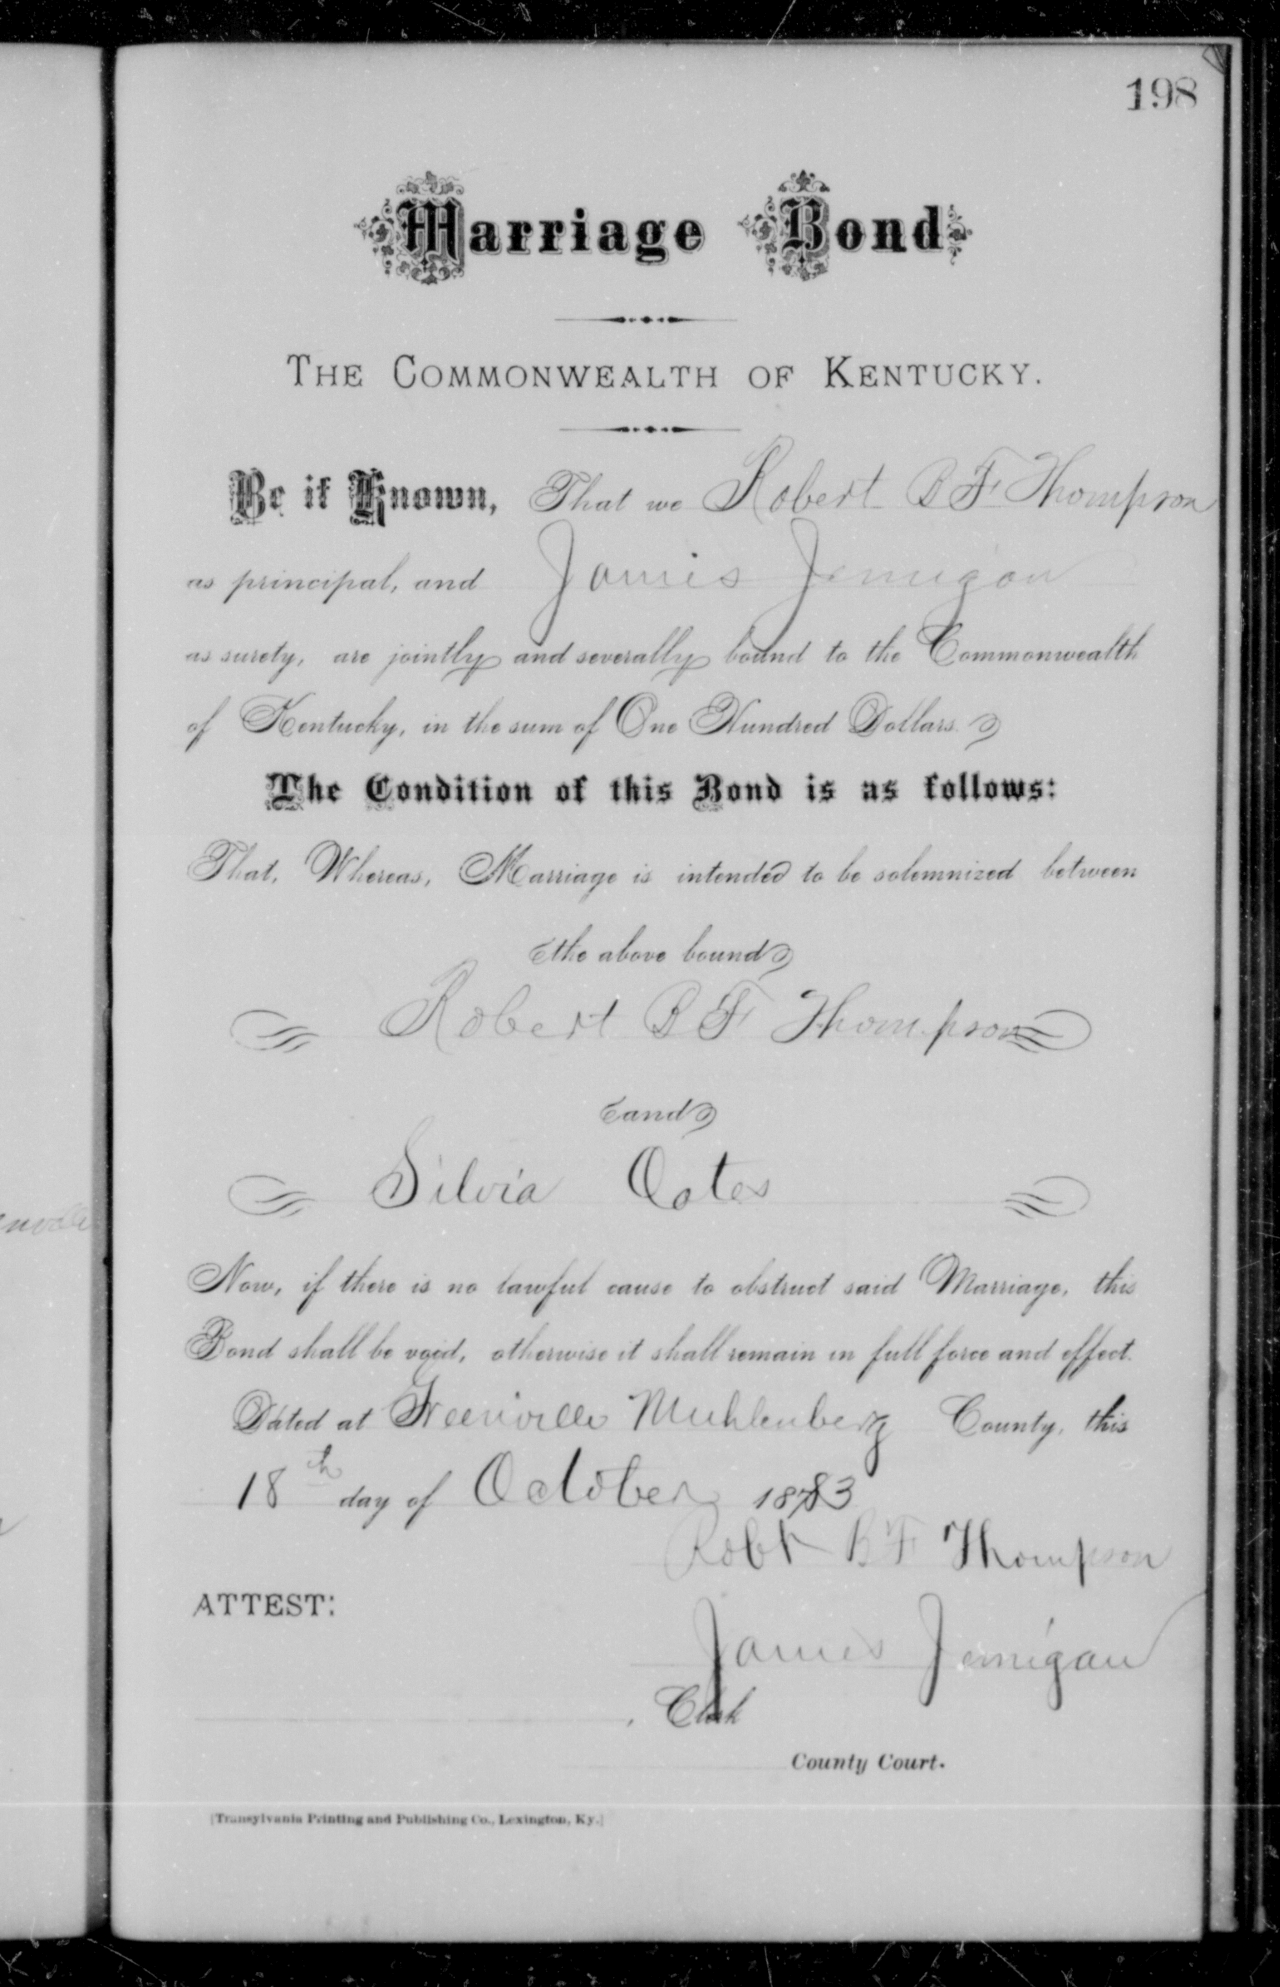 198
Marriage Bond
THE COMMONWEALTH OF KENTUCKY.
Be it Known, That we Robert B F Thompson
as principal, and James Jernigan
as surety, are jointly and severally bound to the Commonwealth
of Kentucky, in the sum of One Hundred Dollars.
The Condition of this Bond is as follows:
That, Whereas, Marriage is intended to be solemnized between
the above bound
Robert B F Thompson
and
Silvia Oates
Now, if there is no lawful cause to obstruct said Marriage, this
Bond shall be void, otherwise it shall remain in full force and effect.
Dated at Greenville Muhlenberg County, this
18th day of October 1883
Robt B F Thompson
ATTEST:
James Jernigan
, Clerk
County Court.
[Transylvania Printing and Publishing Co., Lexington, Ky.]